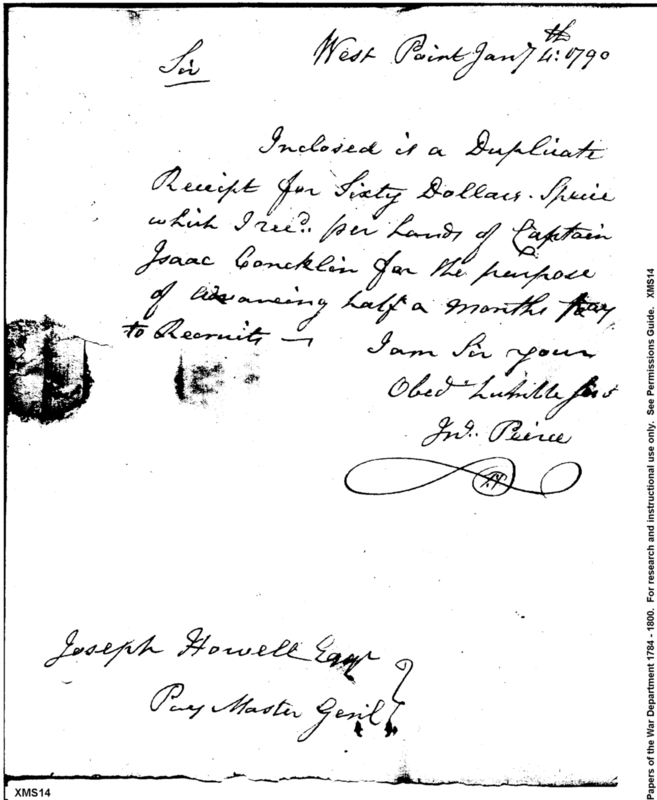 West Point Jany 4th: 1790
Sir
Inclosed is a Duplicate
Receipt for Sixty Dollars. Specie
which I recd. per hands of Captain
IsaacIoncklin for the purpose
of advancing half a months pay
to Recruits —
I am Sir your
Obedt humble Servt
Jno. Peirce
Joseph Howell Esqr
Pay Master Genl
XMS14
Papers of the War Department 1784 - 1800. For research and instructional use only. See Permissions Guide. XMS14